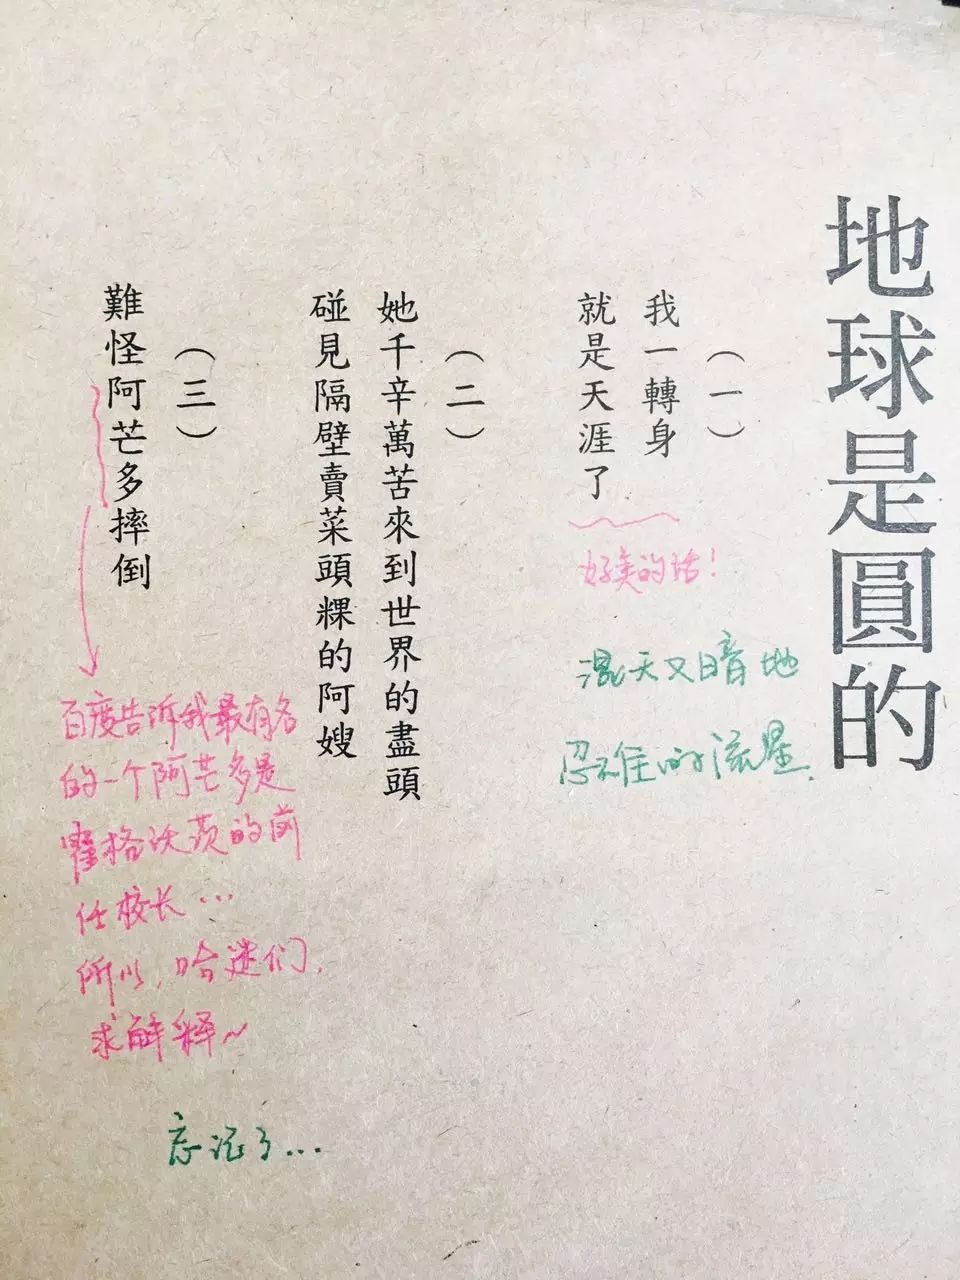 地球是圓的
（一）
我一轉身
就是天涯了
好美的话！
混天又暗地
忍不住的流星.
（二）
她千辛萬苦來到世界的盡頭
碰見隔壁賣菜頭粿的阿嫂
（三）
難怪阿芒多摔倒
百度告诉我最有名
的一个阿芒多是
霍格沃茨的前
任校长…
所以，哈迷们，
求解释~
忘记了…